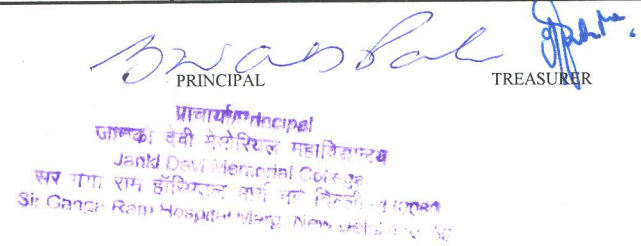 PRINCIPAL TREASURER
प्राचार्या/Principal
जानकी देवी मेमोरियल महाविद्यालय
Janki Devi Memorial College
सर गंगा राम हॉस्पिटल मार्ग नई दिल्ली
Sir Ganga Ram Hospital Marg, New Delhi